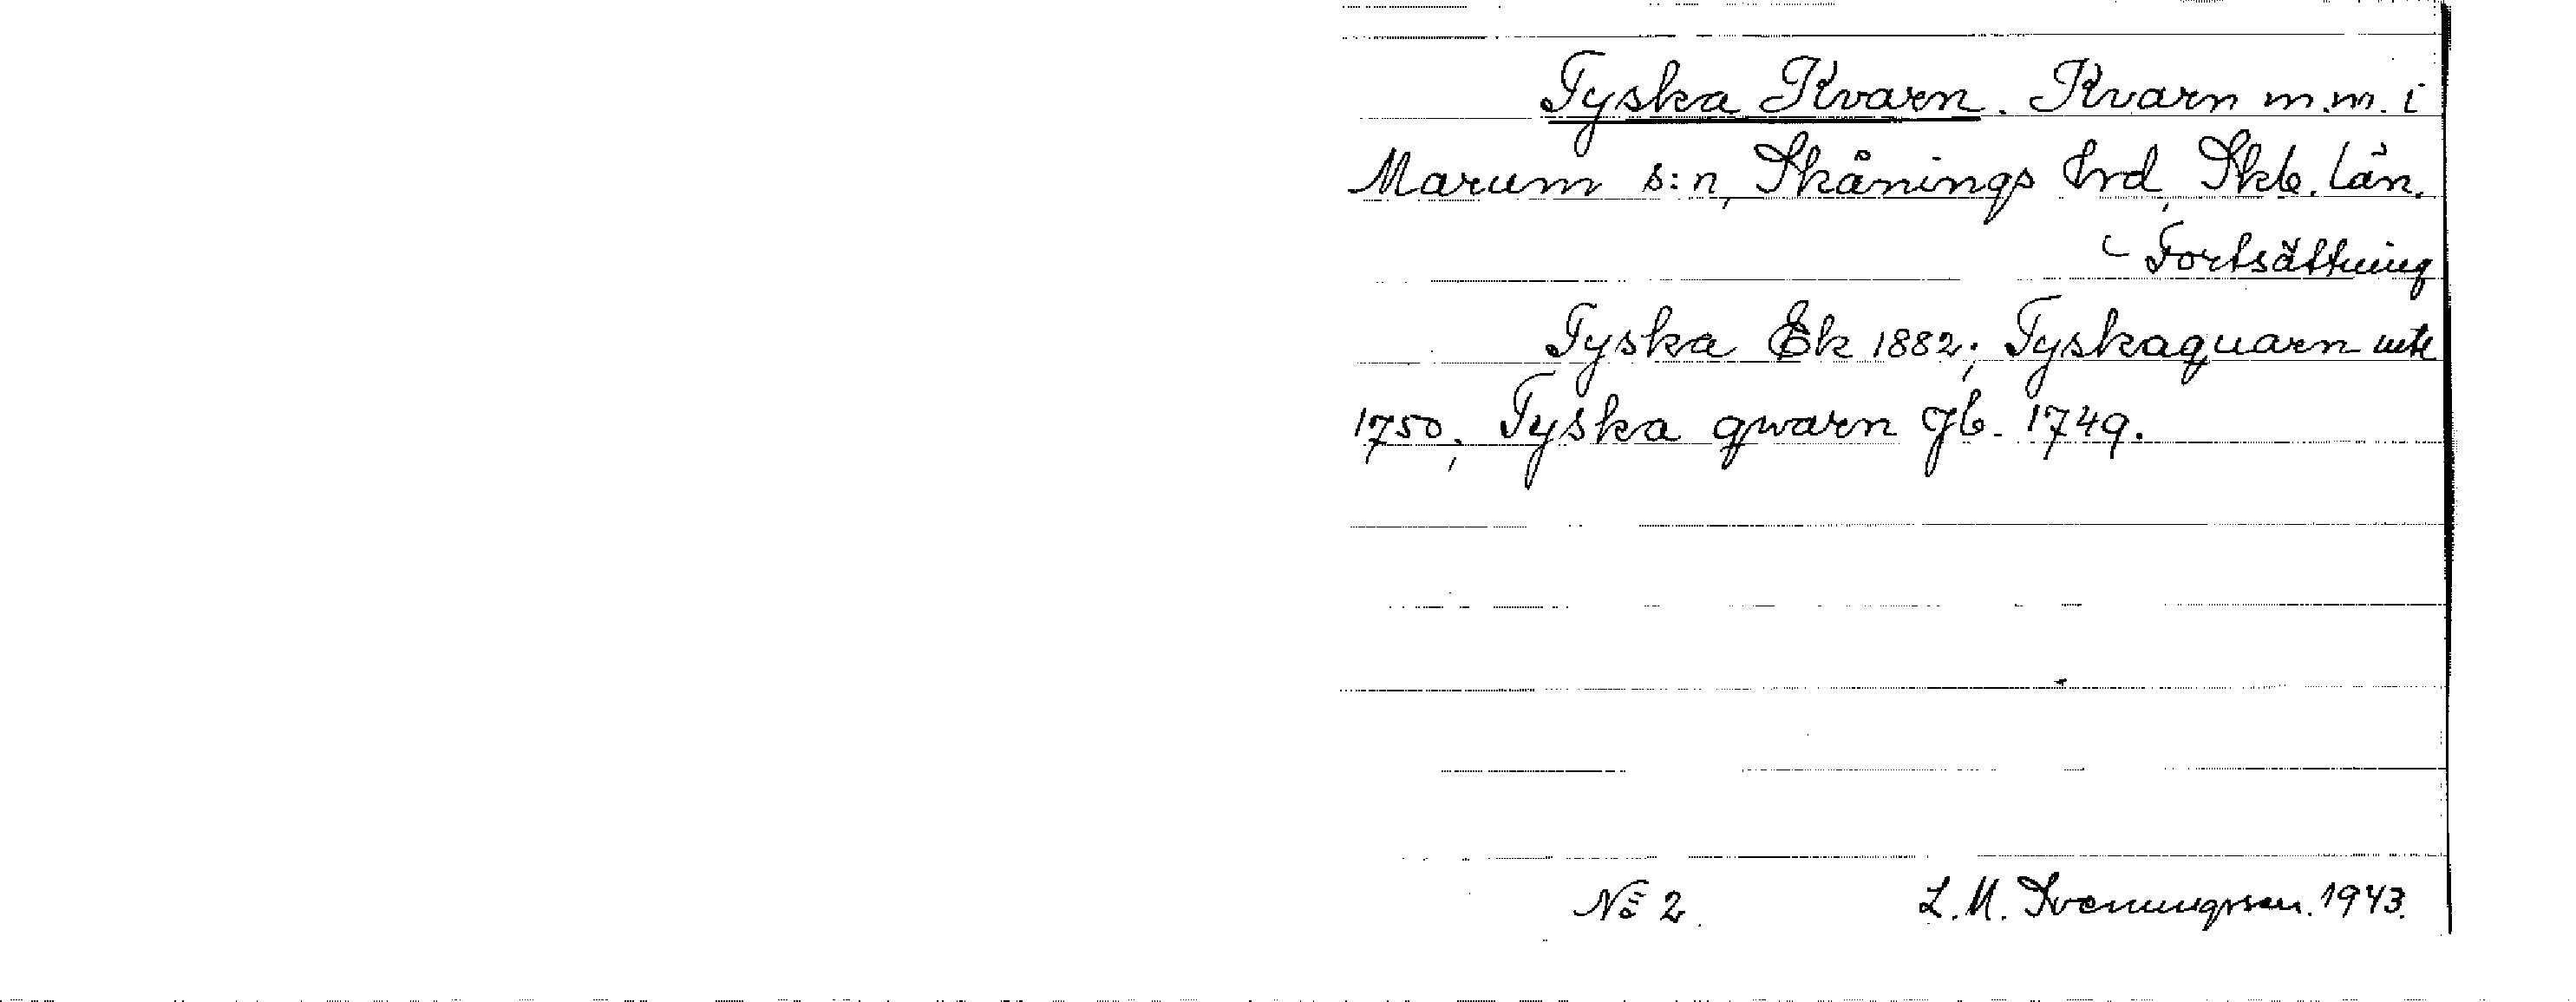 Tyska Kvarn. Kvarn m.m. i
Marum s:n, Skånings hrd, Skb. län.
Fortsättning
Tyska Ek 1882; Tyskaquarn
1750; Tyska qwarn Jb. 1749.
No 2. L. M. Svenungsson. 1943.